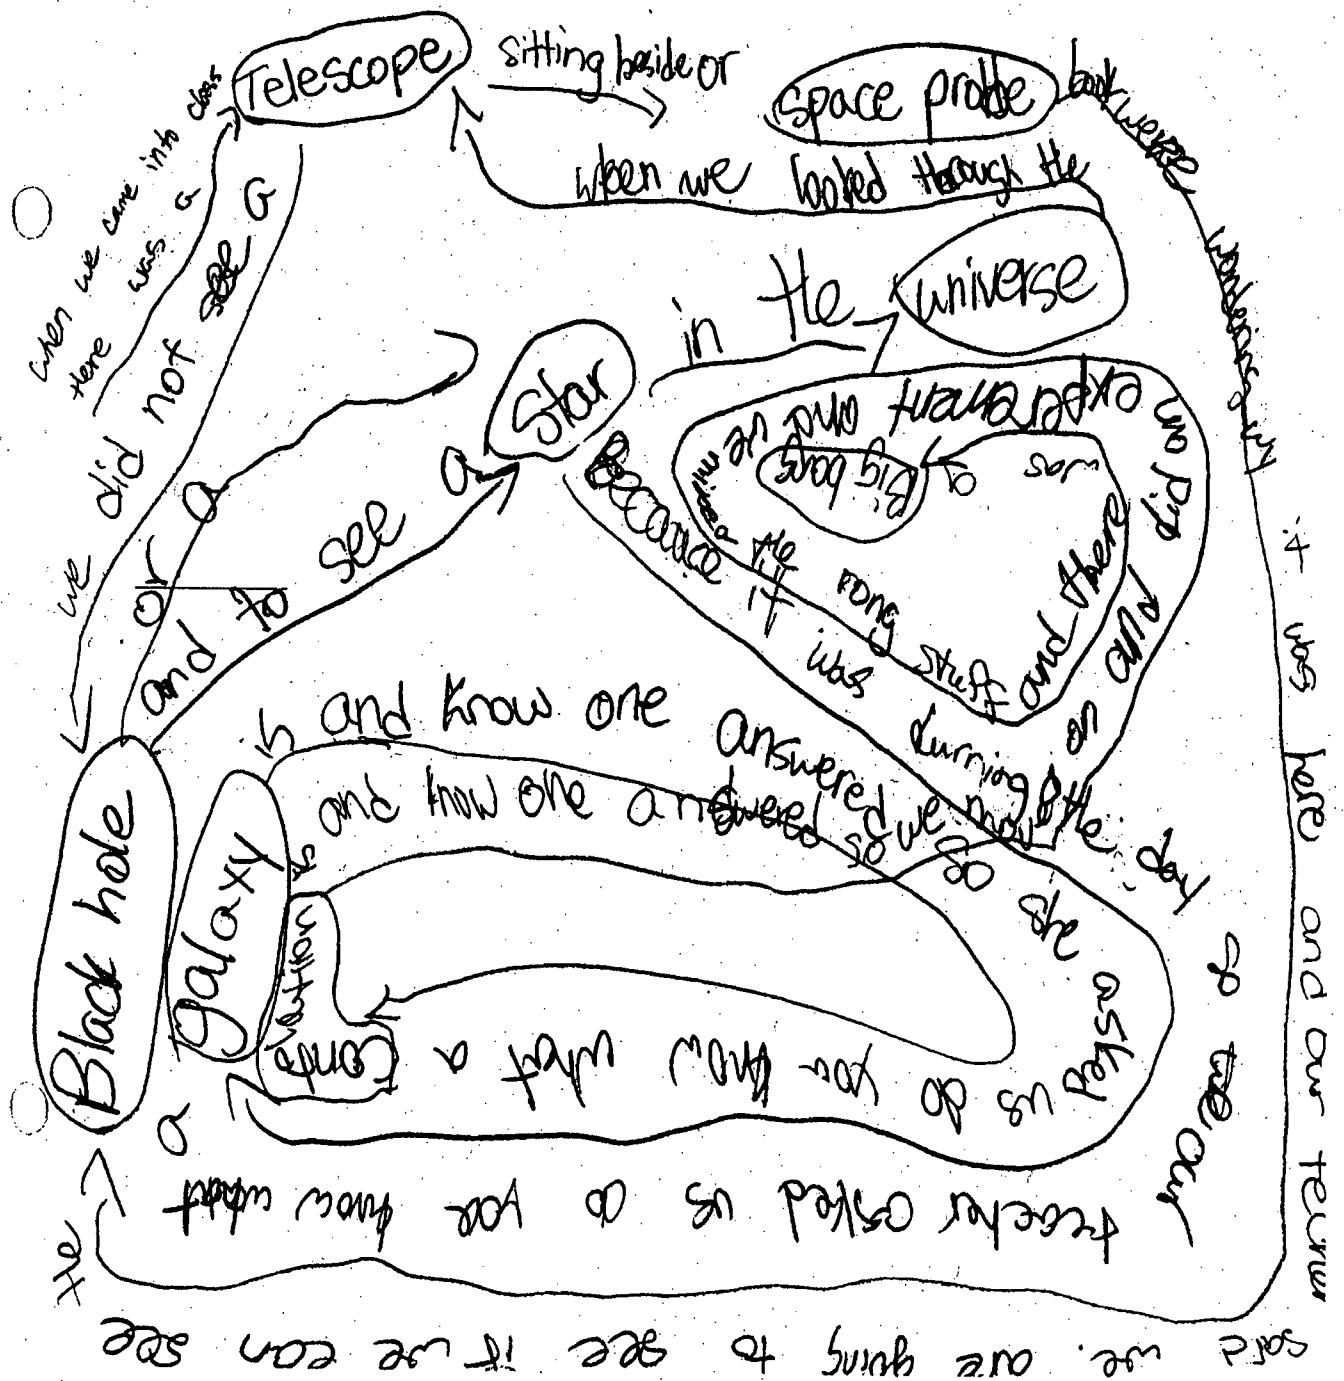 when we came into class
there was a
Telescope
sitting beside or
space probe
book
werse
wondering wy
it was here and our
said we are going to see if we can see
the
Black hole
when we looked through the
Telescope
we did not see a
or a
and to see a
Star
in the
universe
because it was durning the day
so we our
teacher asked us do you know what
a
galaxy
is and know one answered so
she asked us do you know what a
Constellation
is
and know one answered so we
on and
did an
experement and we
mixed the rong stuff and there
was a
Big bang